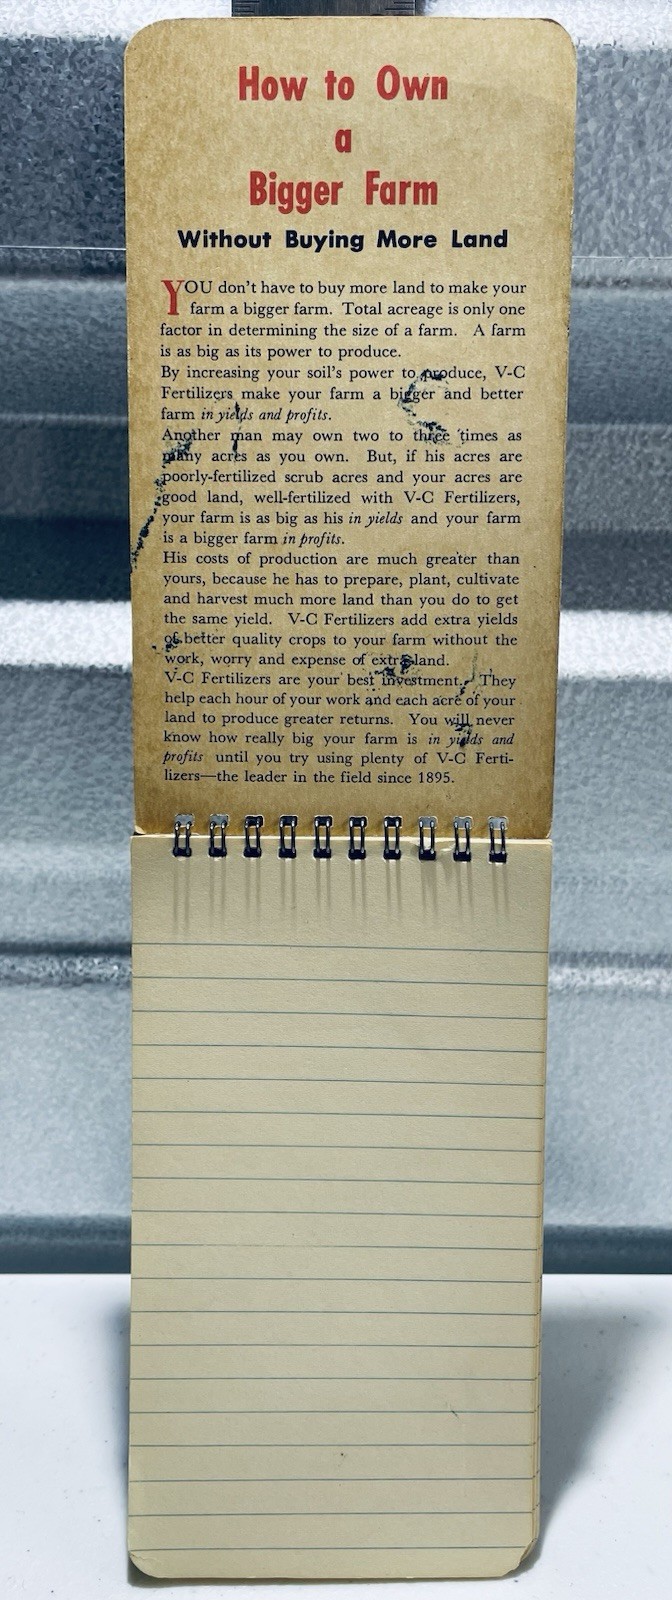 How to Own
a
Bigger Farm
Without Buying More Land
YOU don't have to buy more land to make your
farm a bigger farm. Total acreage is only one
factor in determining the size of a farm. A farm
is as big as its power to produce.
By increasing your soil's power to produce, V-C
Fertilizers make your farm a bigger and better
farm in yields and profits.
Another man may own two to three times as
many acres as you own. But, if his acres are
poorly-fertilized scrub acres and your acres are
good land, well-fertilized with V-C Fertilizers,
your farm is as big as his in yields and your farm
is a bigger farm in profits.
His costs of production are much greater than
yours, because he has to prepare, plant, cultivate
and harvest much more land than you do to get
the same yield. V-C Fertilizers add extra yields
of better quality crops to your farm without the
work, worry and expense of extra land.
V-C Fertilizers are your best investment. They
help each hour of your work and each acre of your
land to produce greater returns. You will never
know how really big your farm is in yields and
profits until you try using plenty of V-C Ferti-
lizers—the leader in the field since 1895.